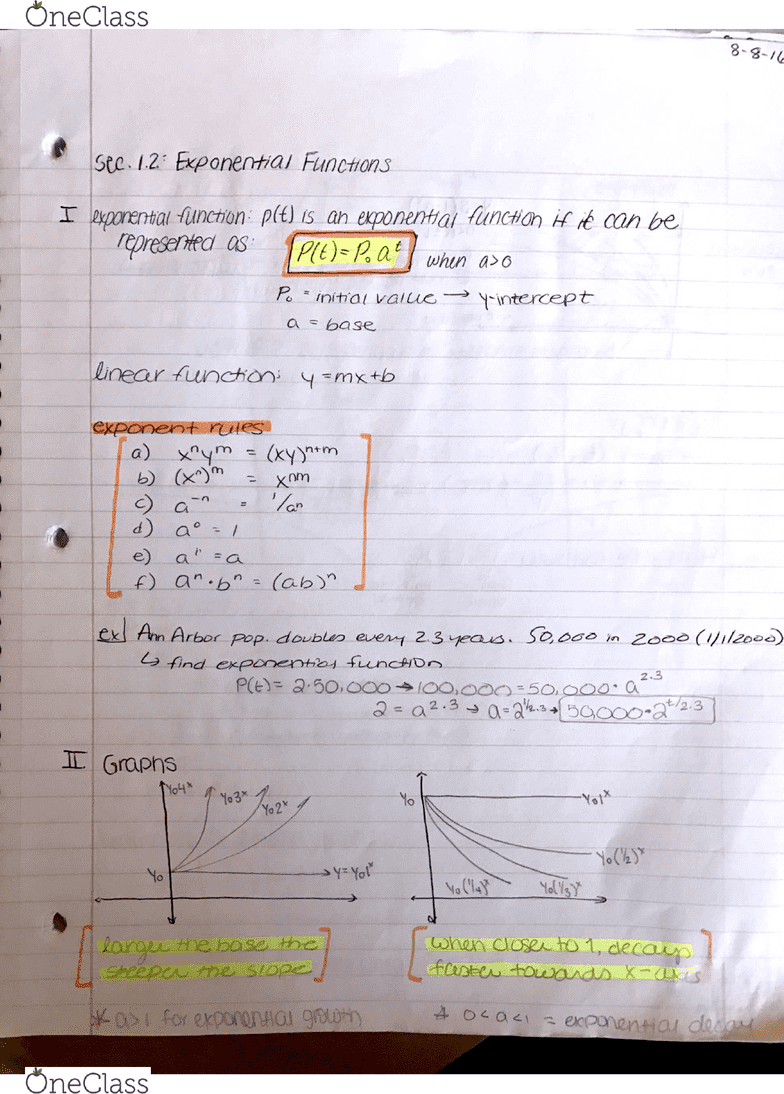 OneClass
8-8-16
sec. 1.2: Exponential Functions
I exponential function: p(t) is an exponential function if it can be
represented as: P(t) = P₀ aᵗ when a>0
P₀ = initial value → y-intercept
a = base
linear function: y = mx+b
exponent rules
a) xⁿyᵐ = (xy)ⁿ⁺ᵐ
b) (xⁿ)ᵐ = xⁿᵐ
c) a⁻ⁿ = 1/aⁿ
d) a⁰ = 1
e) a¹ = a
f) aⁿ·bⁿ = (ab)ⁿ
ex| Ann Arbor pop. doubles every 2.3 years. 50,000 in 2000 (1/1/2000)
↳ find exponential function
P(t) = 2·50,000 → 100,000 = 50,000·a^2.3
2 = a^2.3 → a = 2^1/2.3 → 50,000·2^t/2.3
II Graphs
y₀4ˣ y₀3ˣ y₀2ˣ
y₀ y=y₀1ˣ
y₀ y₀1ˣ
y₀(1/2)ˣ
y₀(1/4)ˣ y₀(1/3)ˣ
larger the base the
steeper the slope
when closer to 1, decays
faster towards x-axis
* a>1 for exponential growth
* 0<a<1 = exponential decay
OneClass